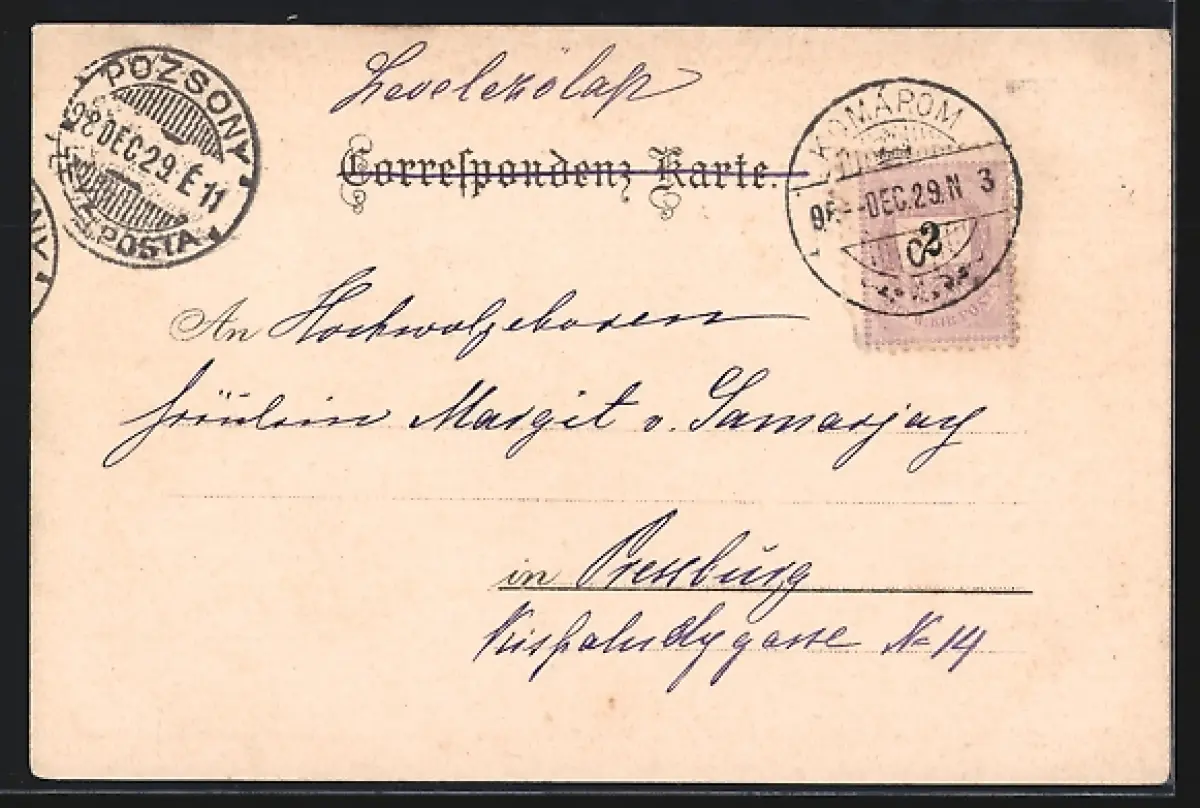 POZSONY
98 DEC. 29. É 11
POSTA
Levelezőlap
Correspondenz Karte.
KOMÁROM
DEC. 29. N 3
2
An Hochwolgeboren
Fräulein Margit v. Samarjay
in Pressburg
Kisfaludygasse № 14